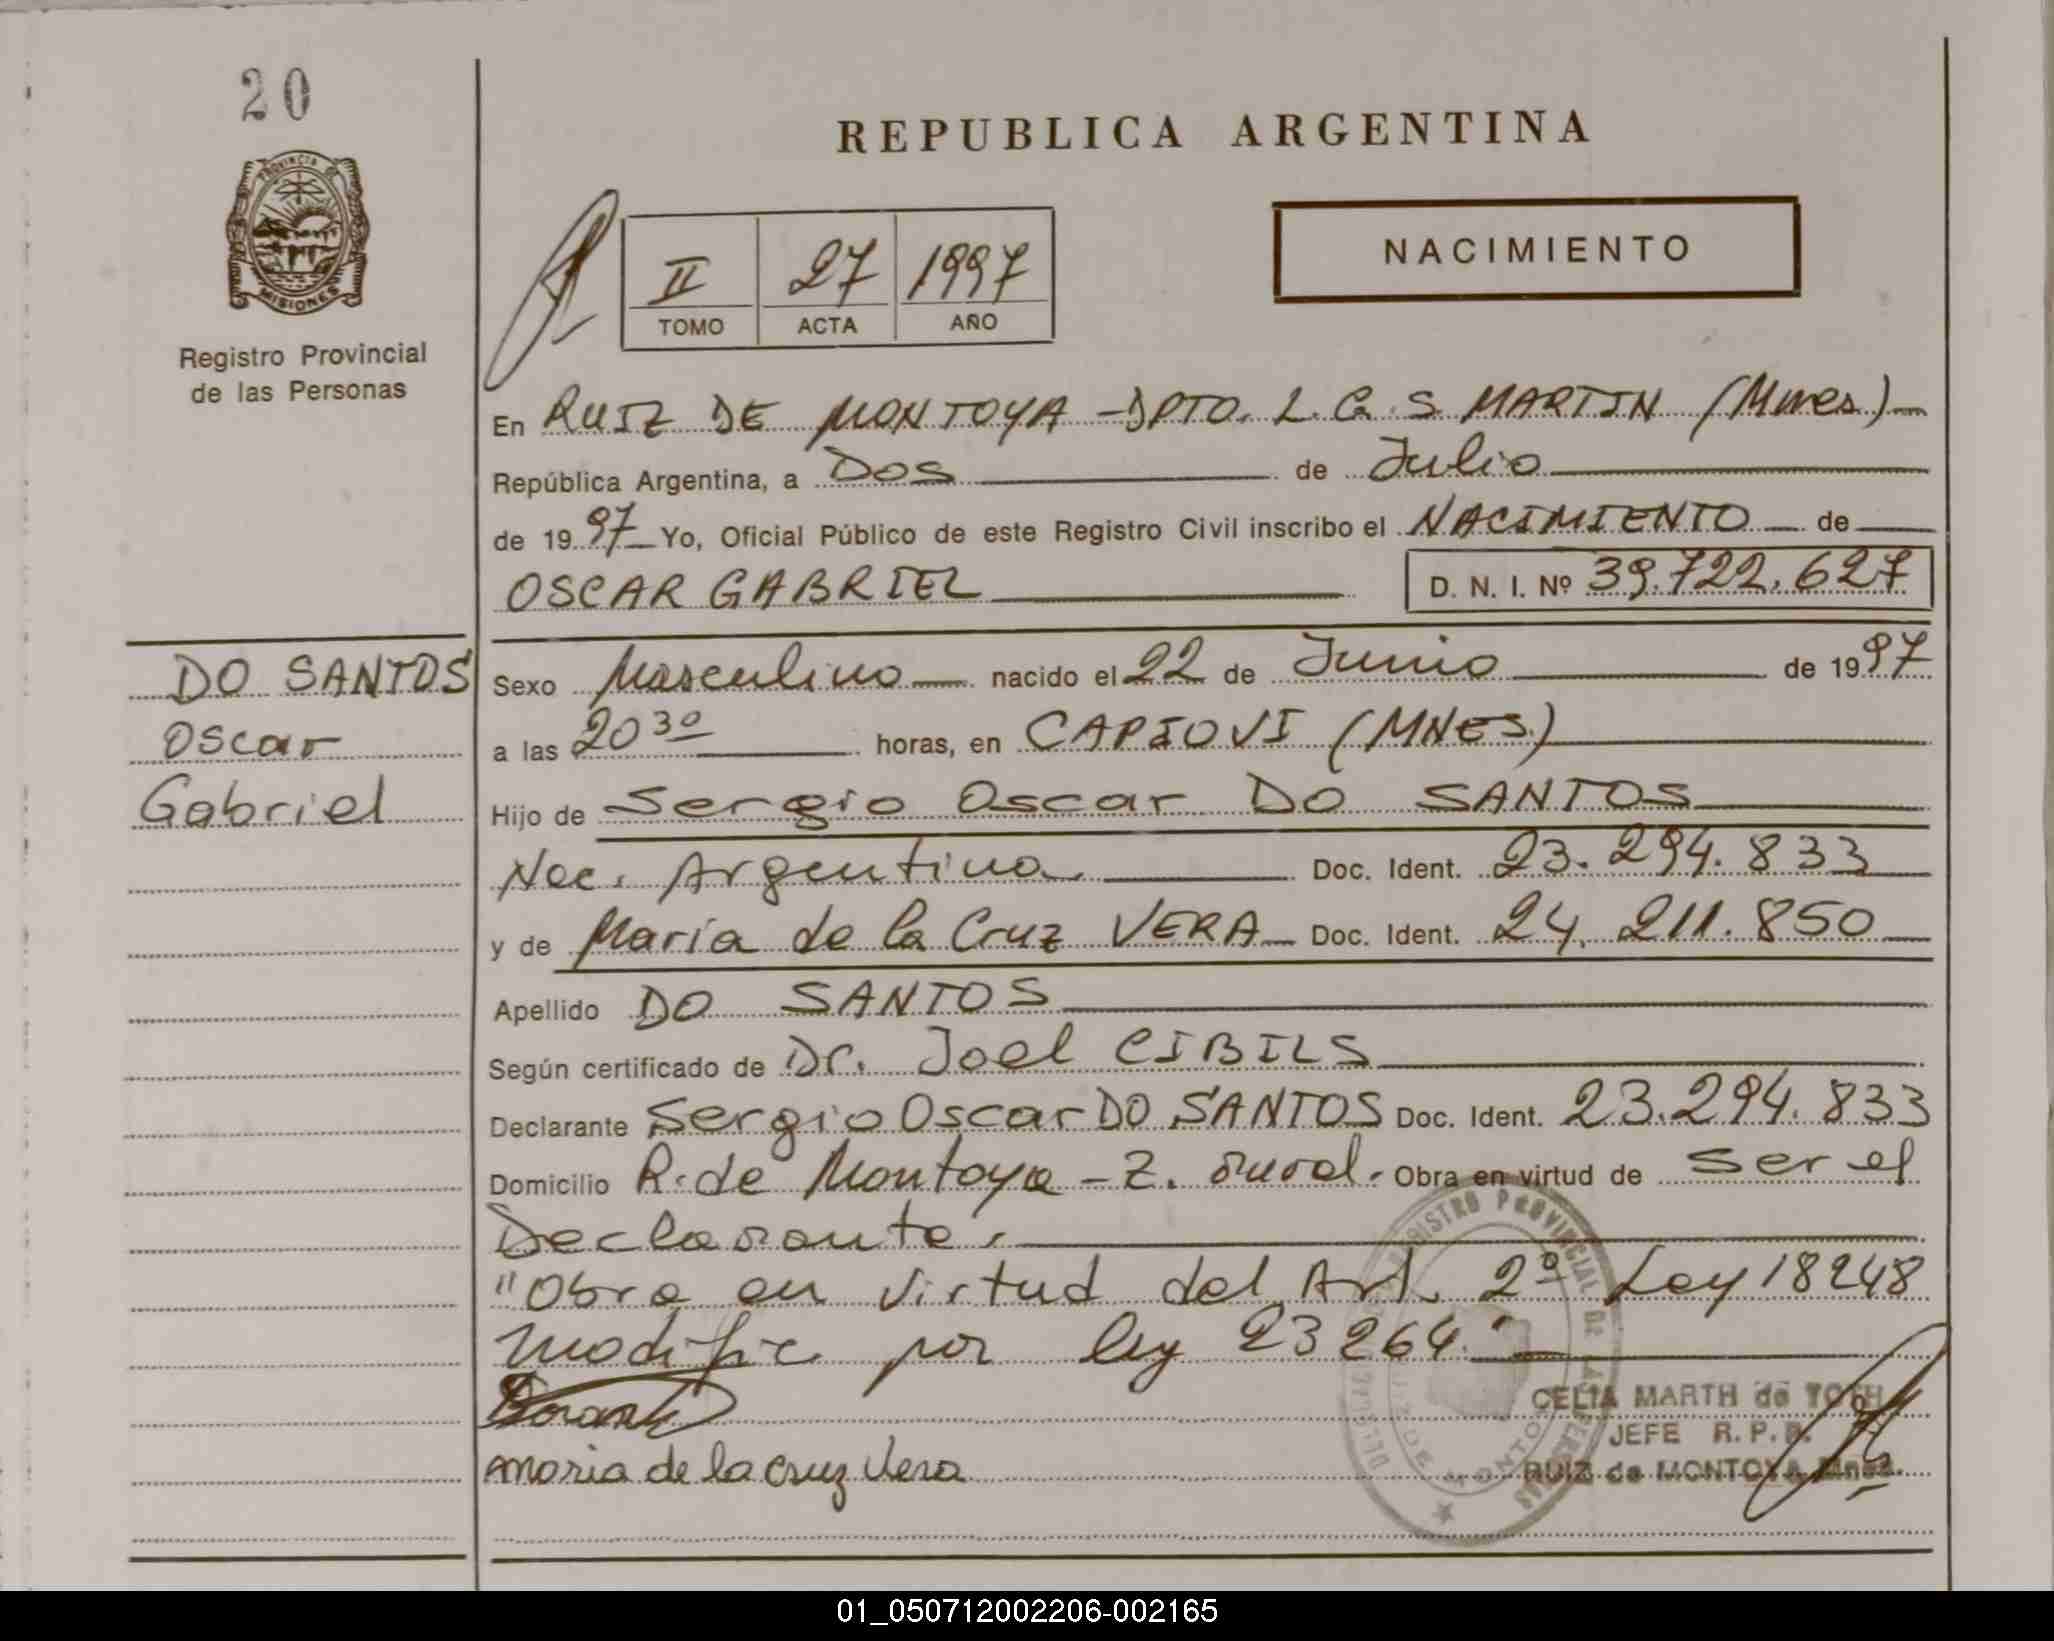 20
REPUBLICA ARGENTINA
PROVINCIA DE
MISIONES
Registro Provincial
de las Personas
NACIMIENTO
II 27 1997
TOMO ACTA AÑO
En RUIZ DE MONTOYA - DPTO. L. G. S. MARTIN (Mnes.)
República Argentina, a DOS de Julio
de 1997 Yo, Oficial Público de este Registro Civil inscribo el NACIMIENTO de
OSCAR GABRIEL D. N. I. Nº 39.722.627
DO SANTOS
Oscar
Gabriel
Sexo Masculino nacido el 22 de Junio de 1997
a las 20 30 horas, en CAPIOVI (MNES.)
Hijo de Sergio Oscar DO SANTOS
Nac. Argentina. Doc. Ident. 23.294.833
y de María de la Cruz VERA Doc. Ident. 24.211.850
Apellido DO SANTOS
Según certificado de Dr. Joel CIBILS
Declarante Sergio Oscar DO SANTOS Doc. Ident. 23.294.833
Domicilio R. de Montoya - Z. rural. Obra en virtud de ser el
Declarante.
"Obra en virtud del Art. 2º Ley 18248
modific por ley 23264."
Maria de la Cruz Vera
CELIA MARTH de TOTH
JEFE R. P. P.
RUIZ de MONTOYA Mnes.
REGISTRO PROVINCIAL DE LAS PERSONAS
RUIZ DE MONTOYA
01_050712002206-002165